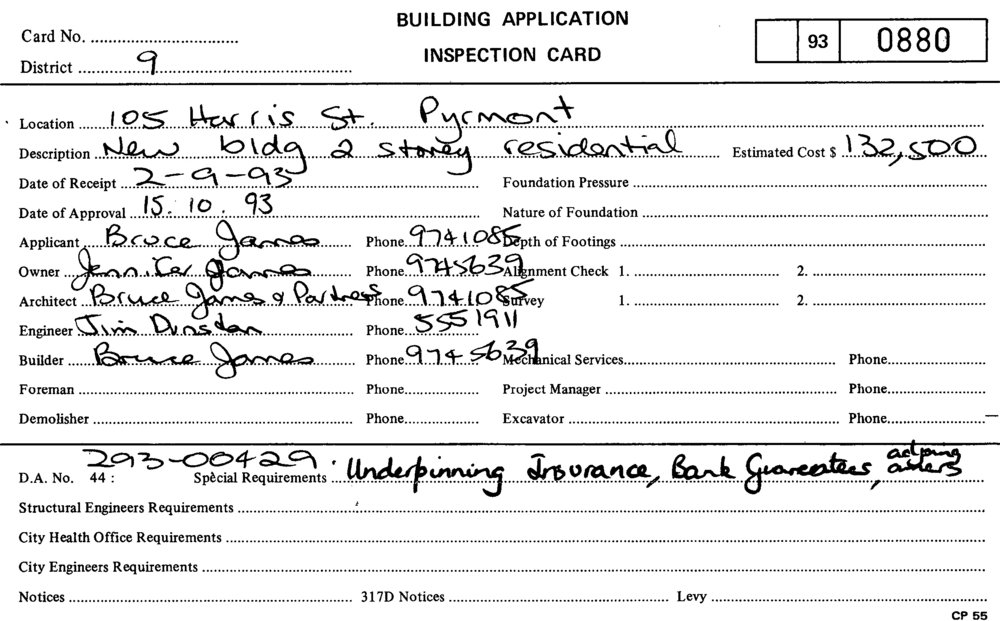 BUILDING APPLICATION
INSPECTION CARD
Card No.
District 9
93 0880
Location 105 Harris St. Pyrmont
Description New bldg 2 storey residential Estimated Cost $ 132,500
Date of Receipt 2-9-93 Foundation Pressure
Date of Approval 15. 10. 93 Nature of Foundation
Applicant Bruce James Phone 9741085 Depth of Footings
Owner Jennifer James Phone 9745639 Alignment Check 1. 2.
Architect Bruce James & Partners Phone 9741085 Survey 1. 2.
Engineer Jim Dunstan Phone 5551911
Builder Bruce James Phone 9745639 Mechanical Services Phone
Foreman Phone Project Manager Phone
Demolisher Phone Excavator Phone
D.A. No. 44 : 293-00429 Special Requirements Underpinning Insurance, Bank Guarantees,
Structural Engineers Requirements
City Health Office Requirements
City Engineers Requirements
Notices 317D Notices Levy
CP 55